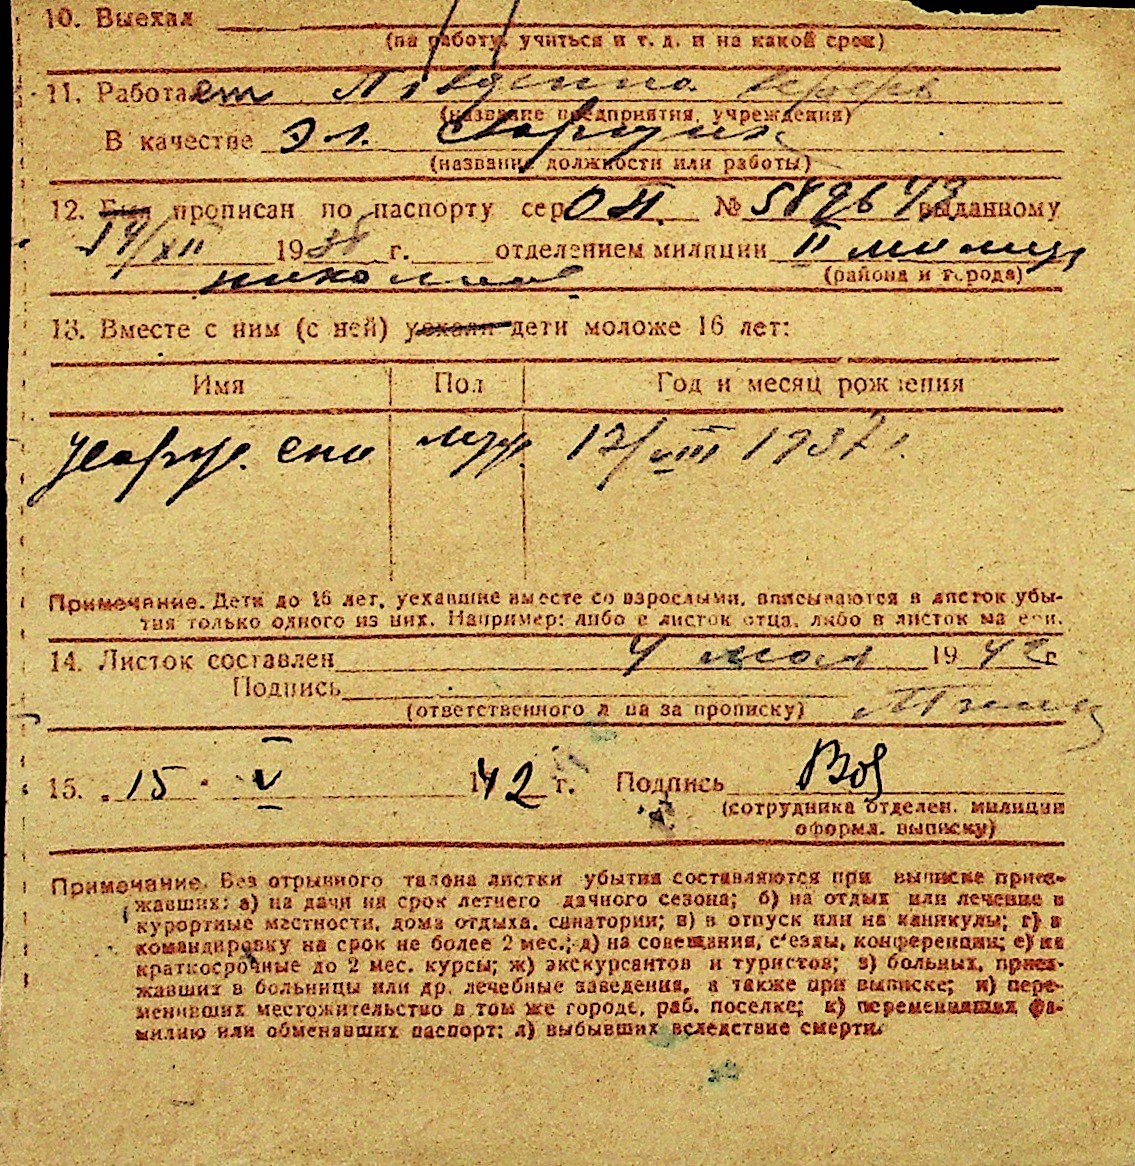 10. Выехал
(на работу, учиться и т. д. и на какой срок)
11. Работает
(название предприятия, учреждения)
В качестве Эл. Сварщик
(название должности или работы)
12. Был прописан по паспорту сер. № 589643 выданному
14/XII 1938 г. отделением милиции II милиц
(района и города)
13. Вместе с ним (с ней) уехали дети моложе 16 лет:
Имя Пол Год и месяц рождения
муж 17/VIII 1937 г.
Примечание. Дети до 16 лет, уехавшие вместе со взрослыми, вписываются в листок убы-
тия только одного из них. Например: либо в листок отца, либо в листок матери.
14. Листок составлен 4 мая 1942 г
Подпись
(ответственного лица за прописку)
15. „ 15 " V 1942 г. Подпись
(сотрудника отделен. милиции
оформл. выписку)
Примечание. Без отрывного талона листки убытия составляются при выписке приез-
жавших: а) на дачи на срок летнего дачного сезона; б) на отдых или лечение в
курортные местности, дома отдыха, санатории; в) в отпуск или на каникулы; г) в
командировку на срок не более 2 мес.; д) на совещания, с'езды, конференции; е) на
краткосрочные до 2 мес. курсы; ж) экскурсантов и туристов; з) больных, приез-
жавших в больницы или др. лечебные заведения, а также при выписке; и) пере-
менивших местожительство в том же городе, раб. поселке; к) переменивших фа-
милию или обменявших паспорт; л) выбывших вследствие смерти.